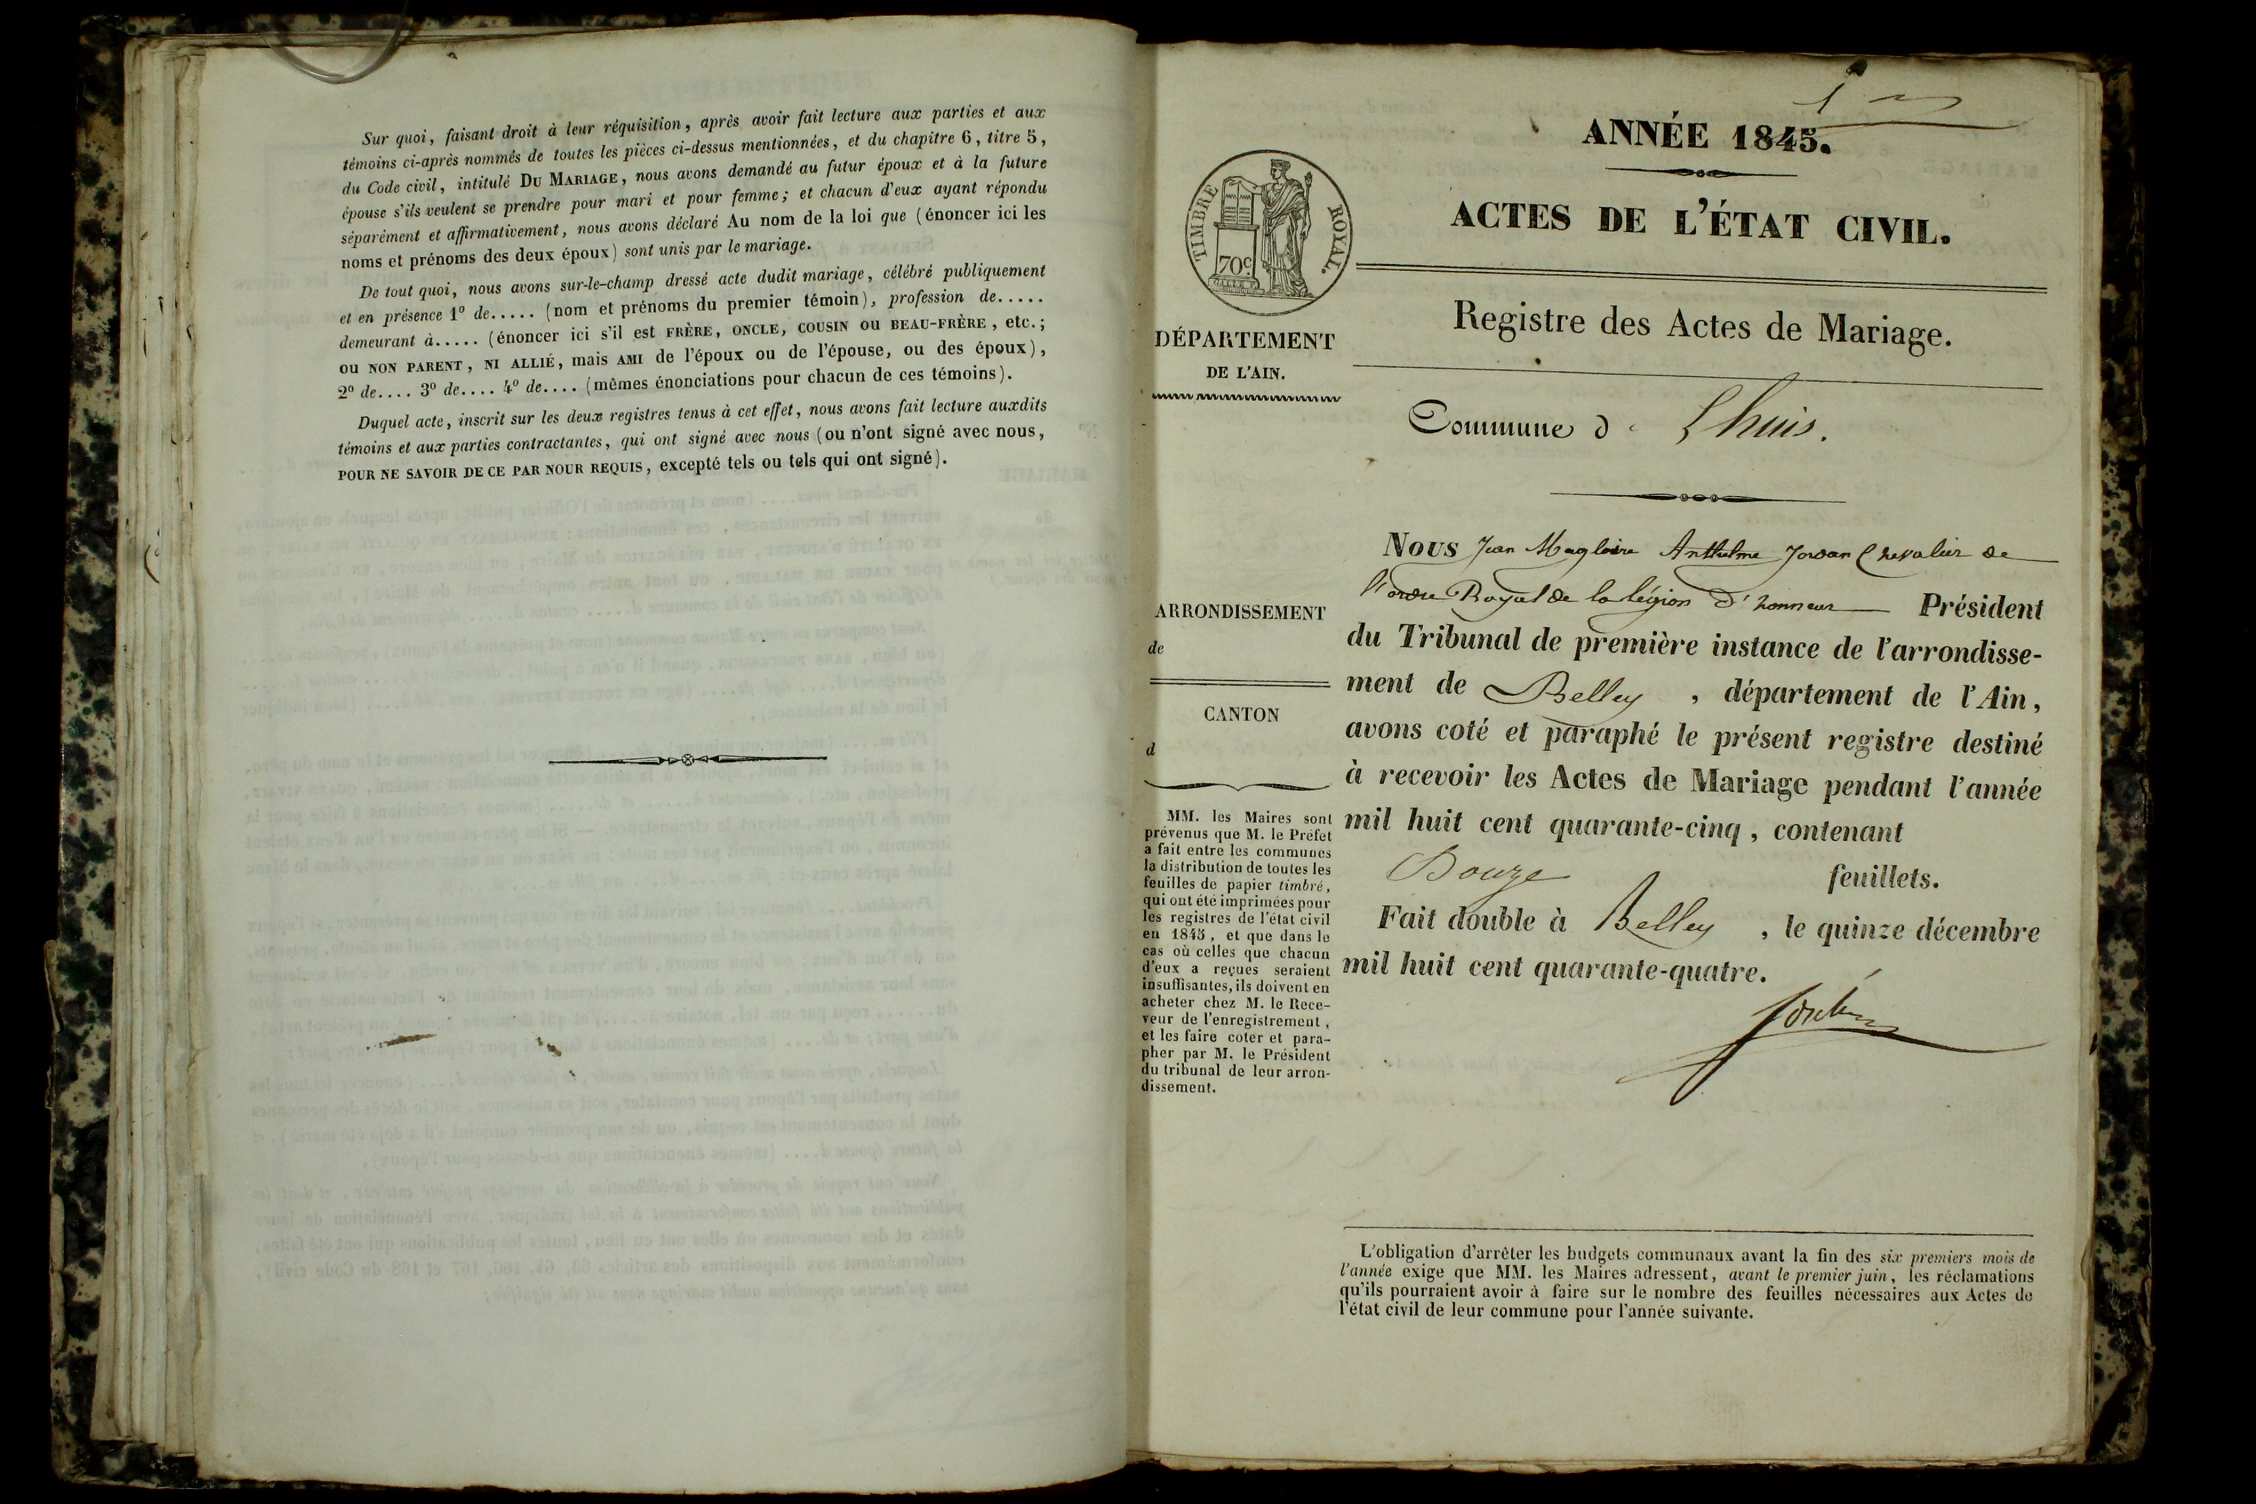 Sur quoi, faisant droit à leur réquisition, après avoir fait lecture aux parties et aux
témoins ci-après nommés de toutes les pièces ci-dessus mentionnées, et du chapitre 6, titre 5,
du Code civil, intitulé DU MARIAGE, nous avons demandé au futur époux et à la future
épouse s'ils veulent se prendre pour mari et pour femme; et chacun d'eux ayant répondu
séparément et affirmativement, nous avons déclaré Au nom de la loi que (énoncer ici les
noms et prénoms des deux époux) sont unis par le mariage.
De tout quoi, nous avons sur-le-champ dressé acte dudit mariage, célébré publiquement
et en présence 1º de..... (nom et prénoms du premier témoin), profession de.....
demeurant à..... (énoncer ici s'il est FRÈRE, ONCLE, COUSIN OU BEAU-FRÈRE, etc.;
OU NON PARENT, NI ALLIÉ, mais AMI de l'époux ou de l'épouse, ou des époux),
2º de.... 3º de.... 4º de.... (mêmes énonciations pour chacun de ces témoins).
Duquel acte, inscrit sur les deux registres tenus à cet effet, nous avons fait lecture auxdits
témoins et aux parties contractantes, qui ont signé avec nous (ou n'ont signé avec nous,
POUR NE SAVOIR DE CE PAR NOUR REQUIS, excepté tels ou tels qui ont signé).
1
ANNÉE 1845.
ACTES DE L'ÉTAT CIVIL.
TIMBRE ROYAL.
70c
DÉPARTEMENT
DE L'AIN.
Registre des Actes de Mariage.
Commune d Lhuis.
ARRONDISSEMENT
de
CANTON
d
MM. les Maires sont
prévenus que M. le Préfet
a fait entre les communes
la distribution de toutes les
feuilles de papier timbré,
qui ont été imprimées pour
les registres de l'état civil
en 1845, et que dans le
cas où celles que chacun
d'eux a reçues seraient
insuffisantes, ils doivent en
acheter chez M. le Rece-
veur de l'enregistrement,
et les faire coter et para-
pher par M. le Président
du tribunal de leur arron-
dissement.
Nous Jean Magloire Anthelme Jordan Chevalier de
l'ordre Royal de la légion d'honneur Président
du Tribunal de première instance de l'arrondisse-
ment de Belley, département de l'Ain,
avons coté et paraphé le présent registre destiné
à recevoir les Actes de Mariage pendant l'année
mil huit cent quarante-cinq, contenant
Douze feuillets.
Fait double à Belley, le quinze décembre
mil huit cent quarante-quatre.
L'obligation d'arrêter les budgets communaux avant la fin des six premiers mois de
l'année exige que MM. les Maires adressent, avant le premier juin, les réclamations
qu'ils pourraient avoir à faire sur le nombre des feuilles nécessaires aux Actes de
l'état civil de leur commune pour l'année suivante.